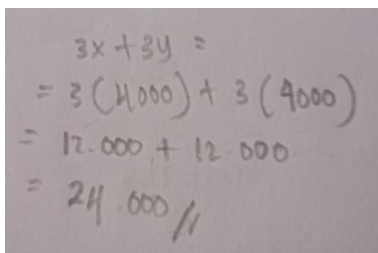 3x + 3y =
= 3 (4000) + 3 (4000)
= 12.000 + 12.000
= 24.000 //